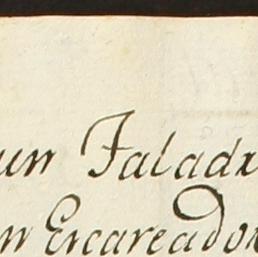 un Faladr
n Encareador